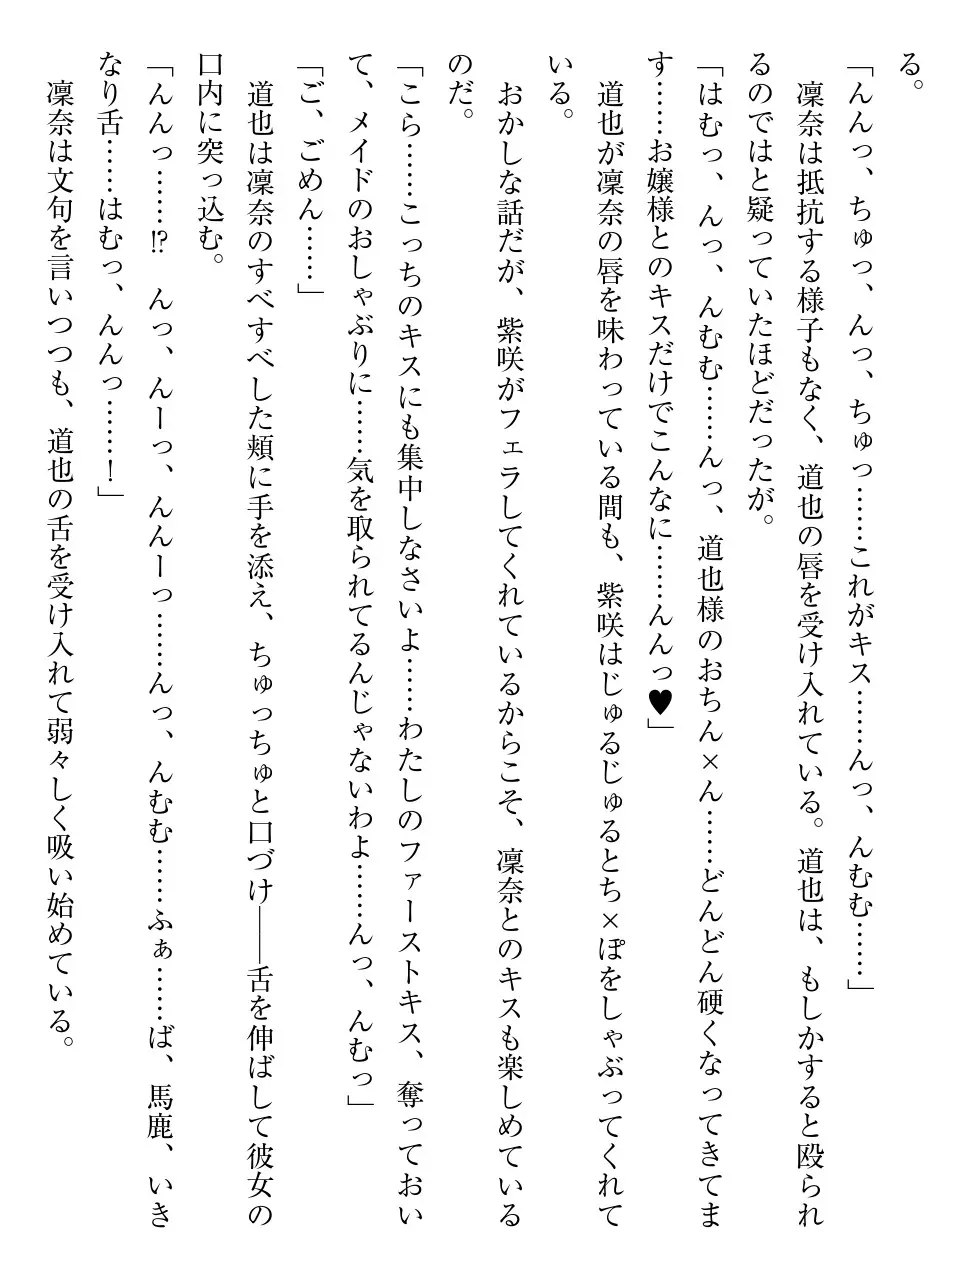 る。
「んんっ、ちゅっ、んっ、ちゅっ……これがキス……んっ、んむむ……」
　凜奈は抵抗する様子もなく、道也の唇を受け入れている。道也は、もしかすると殴られ
るのではと疑っていたほどだったが。
「はむっ、んっ、んむむ……んっ、道也様のおちん×ん……どんどん硬くなってきてま
す……お嬢様とのキスだけでこんなに……んんっ♥」
　道也が凜奈の唇を味わっている間も、紫咲はじゅるじゅるとち×ぽをしゃぶってくれて
いる。
　おかしな話だが、紫咲がフェラしてくれているからこそ、凜奈とのキスも楽しめている
のだ。
「こら……こっちのキスにも集中しなさいよ……わたしのファーストキス、奪っておい
て、メイドのおしゃぶりに……気を取られてるんじゃないわよ……んっ、んむっ」
「ご、ごめん……」
　道也は凜奈のすべすべした頬に手を添え、ちゅっちゅと口づけ――舌を伸ばして彼女の
口内に突っ込む。
「んんっ……⁉　んっ、んーっ、んんーっ……んっ、んむむ……ふぁ……ば、馬鹿、いき
なり舌……はむっ、んんっ……！」
　凜奈は文句を言いつつも、道也の舌を受け入れて弱々しく吸い始めている。